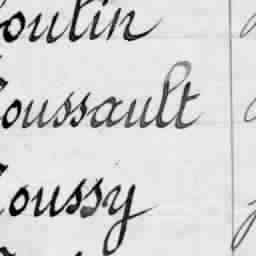 oulin
oussault
oussy